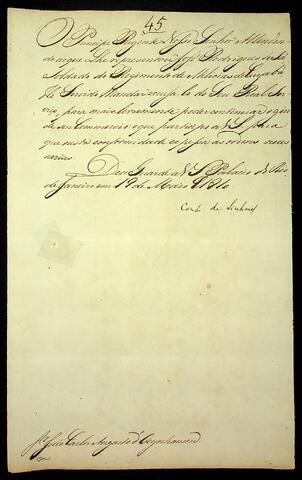 45
O Principe Regente Nosso Senhor Attenden
do ao que Lhe representou José Rodrigues
Soldado do Regimento de Milicias de Cuyabá
Foi Servido Mandar escuzalo do Seu Real Ser
viço para mais livremente poder continuar o giro
do seu Commercio o que participo a V. S. para
que nesta conformidade expessa as ordens neces
sarias.
Deos Guarde a V. S. Palacio do Rio
de Janeiro em 19 de Março 1810.
Conde de Linhares
João Carlos Augusto d'Oeynhausen